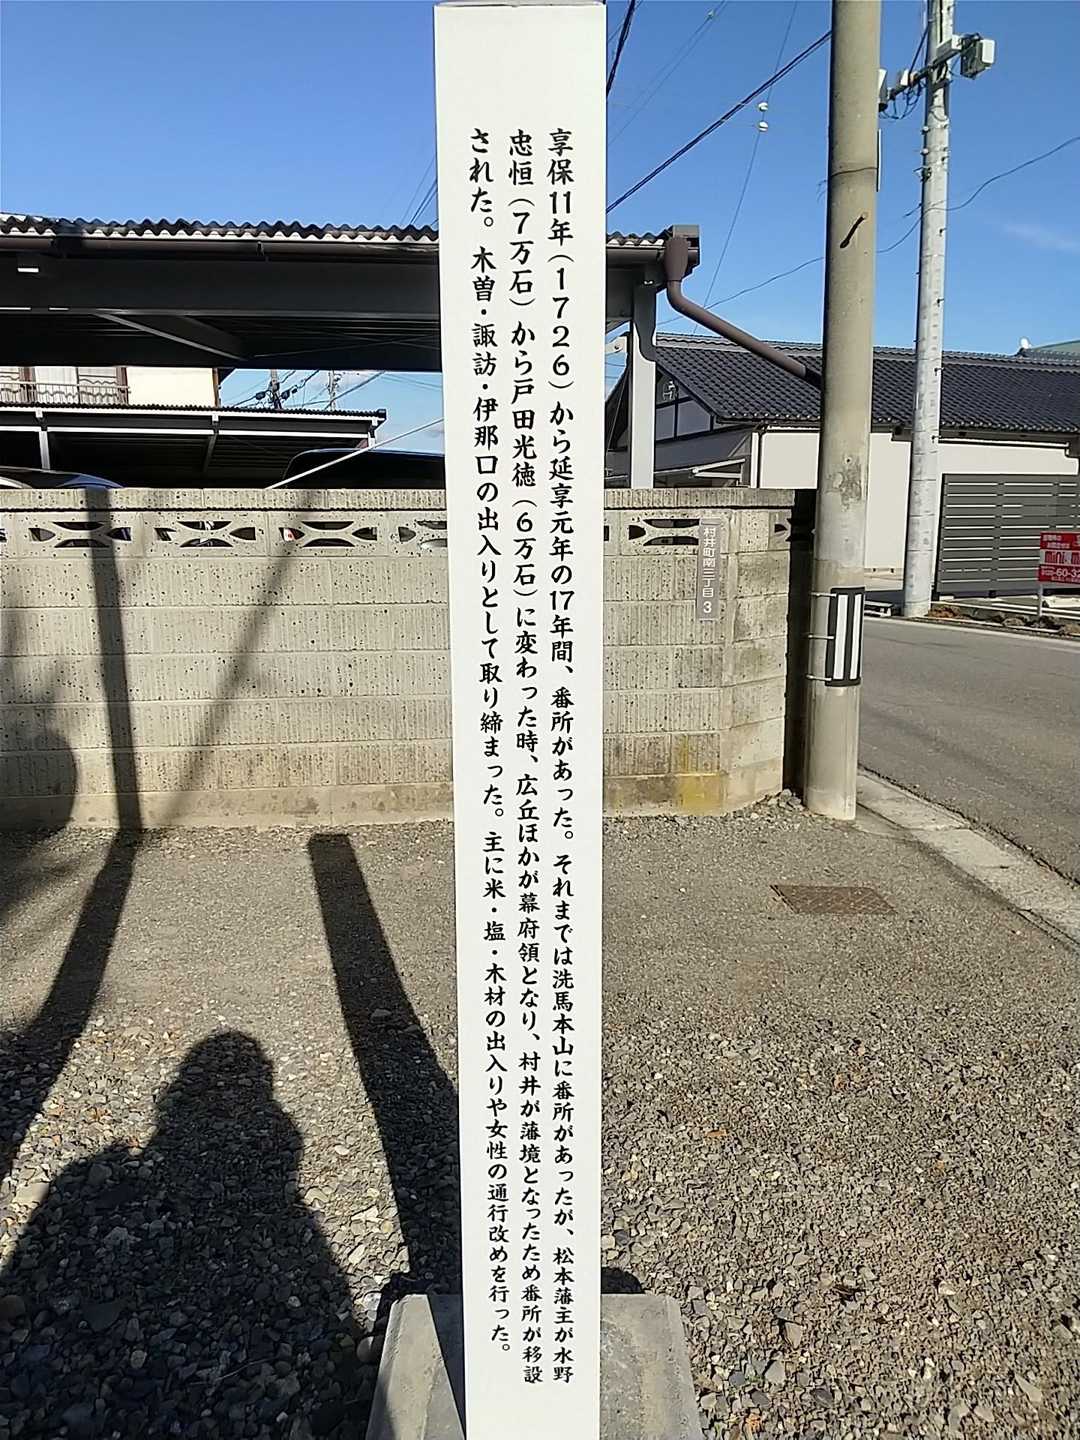 享保11年(1726)から延享元年の17年間、番所があった。それまでは洗馬本山に番所があったが、松本藩主が水野
忠恒(7万石)から戸田光徳(6万石)に変わった時、広丘ほかが幕府領となり、村井が藩境となったため番所が移設
された。木曽・諏訪・伊那口の出入りとして取り締まった。主に米・塩・木材の出入りや女性の通行改めを行った。
村井町南三丁目 3